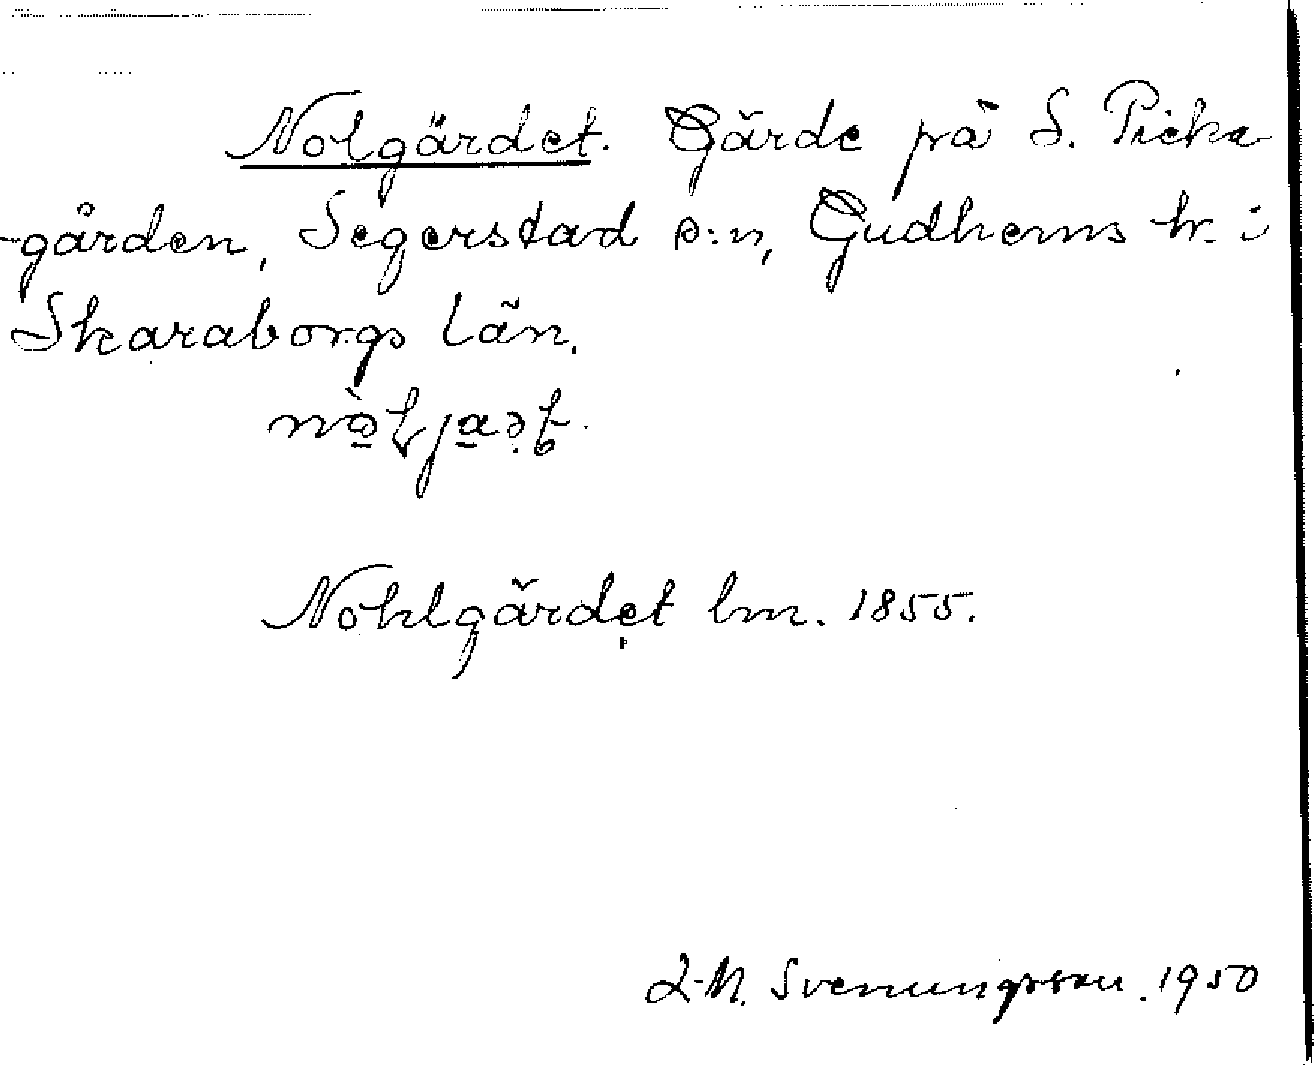 Nolgärdet. Gärde på S. Picka-
-gården, Segerstad s:n, Gudhems hr. i
Skaraborgs län.
Nohlgärdet lm. 1855.
L-M. Svenungsson. 1950